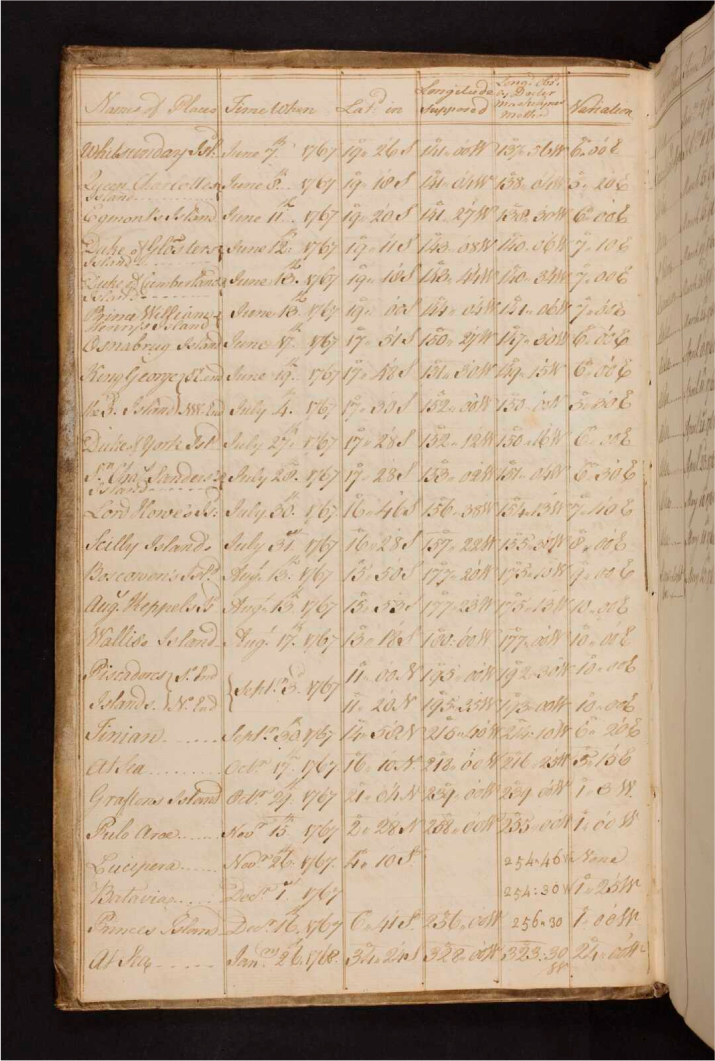 Names of Places Time When Lat.d in Longitude Supposed Long.e by Doctor Maskelyne's Method Variation
Whitsunday Isl. June 7th 1767 19° 26 S 141° 00 W 137° 56 W 6° 00 E
Queen Charlottes Island June 8th 1767 19° 18 S 141° 04 W 138° 04 W 5° 20 E
Egmont's Island June 11th 1767 19° 20 S 141° 27 W 138° 30 W 6° 00 E
Duke of Glosters Island June 12th 1767 19° 11 S 143° 08 W 140° 06 W 7° 10 E
Duke of Cumberlands Island June 13th 1767 19° 18 S 143° 44 W 140° 34 W 7° 00 E
Prince William Henrys Island June 13th 1767 19° 00 S 144° 04 W 141° 06 W 7° 00 E
Osnabrug Island June 17th 1767 17° 51 S 150° 27 W 147° 30 W 6° 00 E
King George S.E. end June 19th 1767 17° 48 S 151° 30 W 149° 15 W 6° 00 E
the 3d. Island N.W. End July 4th 1767 17° 30 S 152° 00 W 150° 00 W 5° 30 E
Duke of York Isl. July 27th 1767 17° 28 S 152° 12 W 150° 16 W 6° 00 E
Sr. Chas. Sanders's Island July 28th 1767 17° 28 S 153° 02 W 151° 04 W 6° 30 E
Lord Howe's Is. July 30th 1767 16° 46 S 156° 38 W 154° 13 W 7° 40 E
Scilly Islands July 31st 1767 16° 28 S 157° 22 W 155° 30 W 8° 00 E
Boscowen's Isl. Augt. 13th 1767 15° 50 S 177° 20 W 175° 10 W 9° 00 E
Augt. Keppels Is Augt. 13th 1767 15° 53 S 177° 23 W 175° 13 W 10° 00 E
Wallis's Island Augt. 17th 1767 13° 18 S 180° 00 W 177° 00 W 10° 00 E
Piscadores So. End 11° 00 N 195° 00 W 192° 30 W 10° 00 E
Sept.r 3d. 1767
Islands No. End 11° 20 N 195° 35 W 193° 00 W 10° 00 E
Tinian Sept.r 30th 1767 14° 58 N 215° 40 W 214° 10 W 6° 20 E
At Sea Octr. 17th 1767 16° 10 N 218° 00 W 216° 25 W 5° 15 E
Graftons Island Octr. 29th 1767 21° 04 N 239° 00 W 239° 00 W 1° 3 W.
Pulo Aroe Novr. 15th 1767 2° 28 N 258° 00 W 255° 00 W 1° 00 W
Lucipera Novr. 26th 1767 4° 10 S 254:46 W None
Batavia Decr. 1st 1767 254:30 W 1° 25 W
Princes Island Decr. 16th 1767 6° 41 S 256° 00 W 256:30 1° 00 W
At Sea Janry. 26th 1768 34° 24 S 328° 00 W 323:30 W 24° 00 W